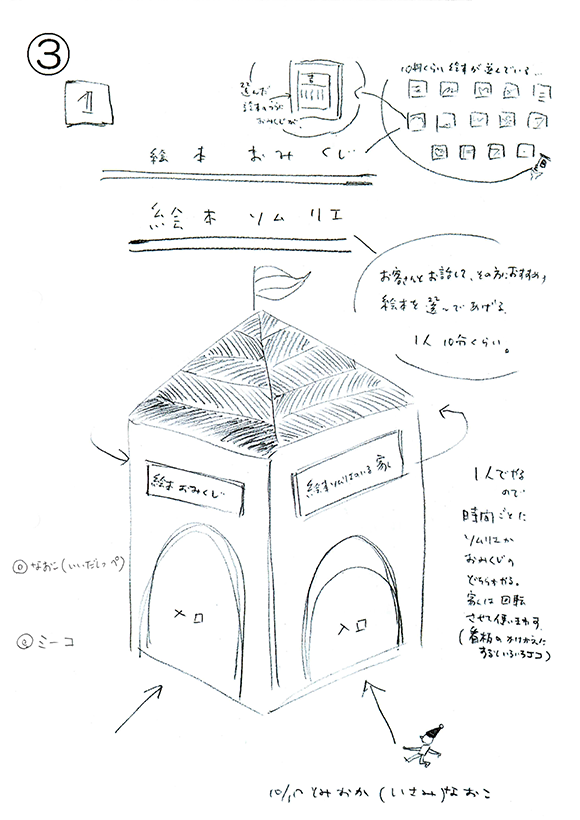 ③
1
10冊くらい絵本が並んでいる…
選んだ
絵本のうらに
おみくじが、
絵本おみくじ
絵本ソムリエ
お客さんとお話して、その方におすすめの
絵本を選んであげる。
1人 10分くらい。
絵本おみくじ
絵本ソムリエのいる家
入口
入口
1人でやる
ので
時間ごとに
ソムリエか
おみくじの
どちらかやる。
家は回転
させて使います。
(看板のかけかえに
なおこ(いいだしっぺ)
ミーコ
とみおか(いさみ)なおこ